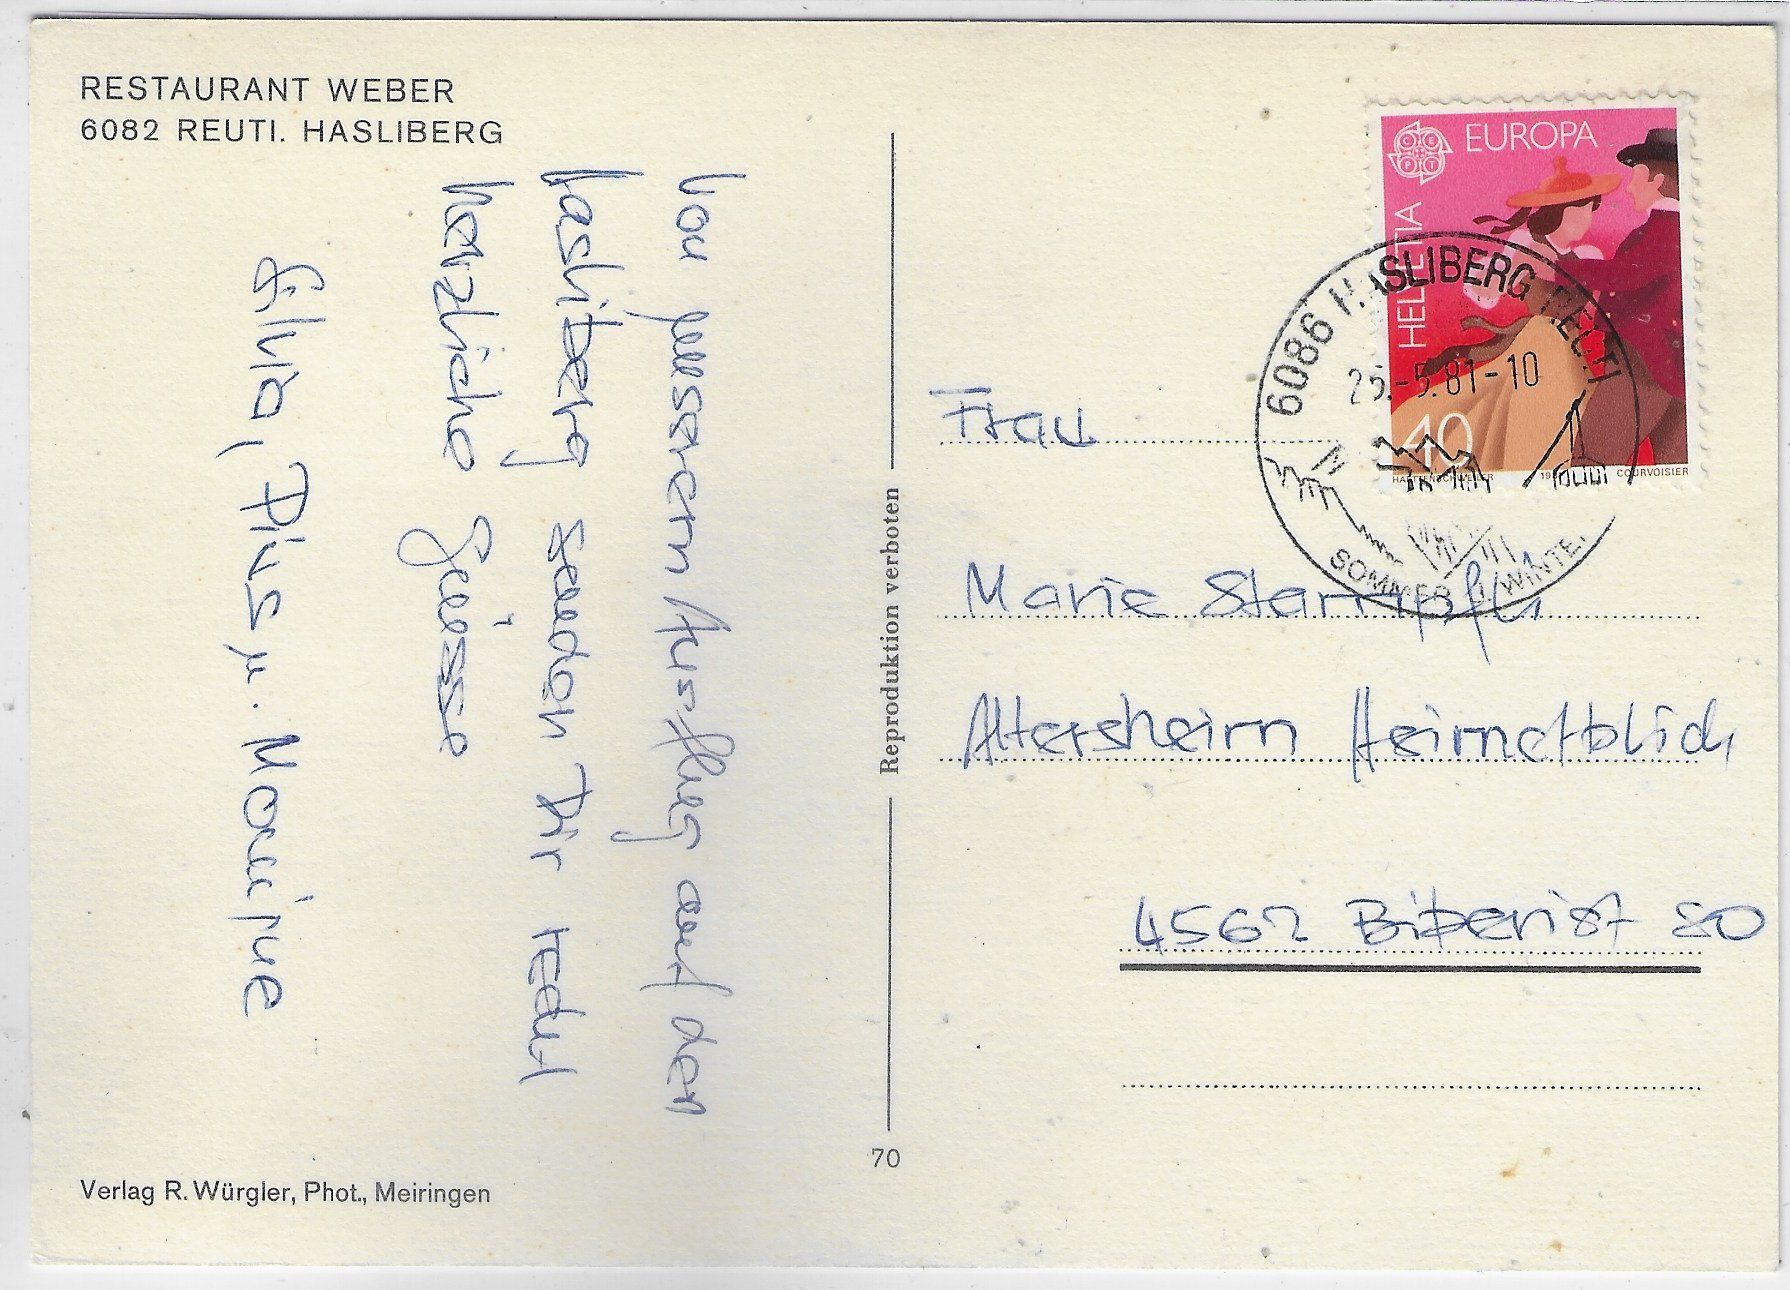 RESTAURANT WEBER
6082 REUTI. HASLIBERG
Von unserem Ausflug auf den
Hasliberg senden Dir recht
herzliche Grüsse
Silvia, Pius u. Monique
Verlag R. Würgler, Phot., Meiringen
Reproduktion verboten
70
EUROPA
CEPT
HELVETIA
40
COURVOISIER
6086 HASLIBERG REUTI
25.-5.81-10
SOMMER U. WINTE
Frau
Marie Stampfli
Altersheim Heimetblick
4562 Biberist SO